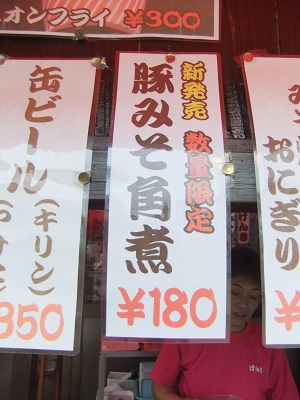 オンフライ ¥300
新発売 数量限定
豚みそ角煮
¥180
缶ビール(キリン)
350
おにぎり
¥
げんき